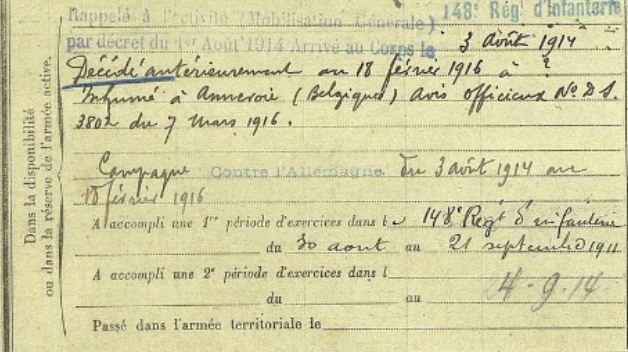 Rappelé à l'activité (Mobilisation Générale) 148e Rég' d'Infanterie
par décret du 1er Août 1914 Arrivé au Corps le 3 août 1914
Décédé antérieurement au 18 février 1916 à ?
Inhumé à Annevoie (Belgique) Avis officieux No D S.
3802 du 7 Mars 1916.
Campagne Contre l'Allemagne du 3 août 1914 au
18 février 1916
A accompli une 1re période d'exercices dans le 148e Régt d'infanterie
du 30 aout au 21 septembre 1911
A accompli une 2e période d'exercices dans l
du au
4-9.14
Passé dans l'armée territoriale le
Dans la disponibilité
ou dans la réserve de l'armée active.